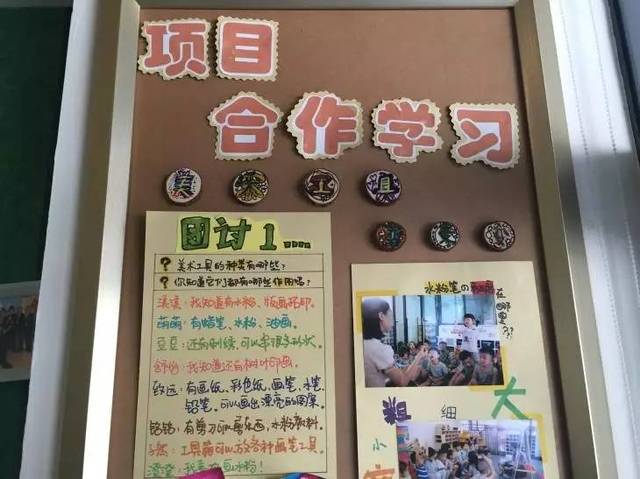 项目
合作学习
美术工具
团讨1....
? 美术工具的种类有哪些?
? 你知道它们都有啥作用吗?
淇淇:我知道有水粉、版画拓印。
萌萌:有蜡笔、水粉、油画。
豆豆:还有刺绣,可以
舒妤:我知道还有树叶印画。
致远:有画纸、彩色纸、画笔、水笔、
铅笔。可以画出漂亮的图案。
铭铭:有剪刀可以剪东西,水粉颜料。
工具箱可以放各种画笔工具。
水粉!
水粉笔の
在哪里??
粗 细 大
小